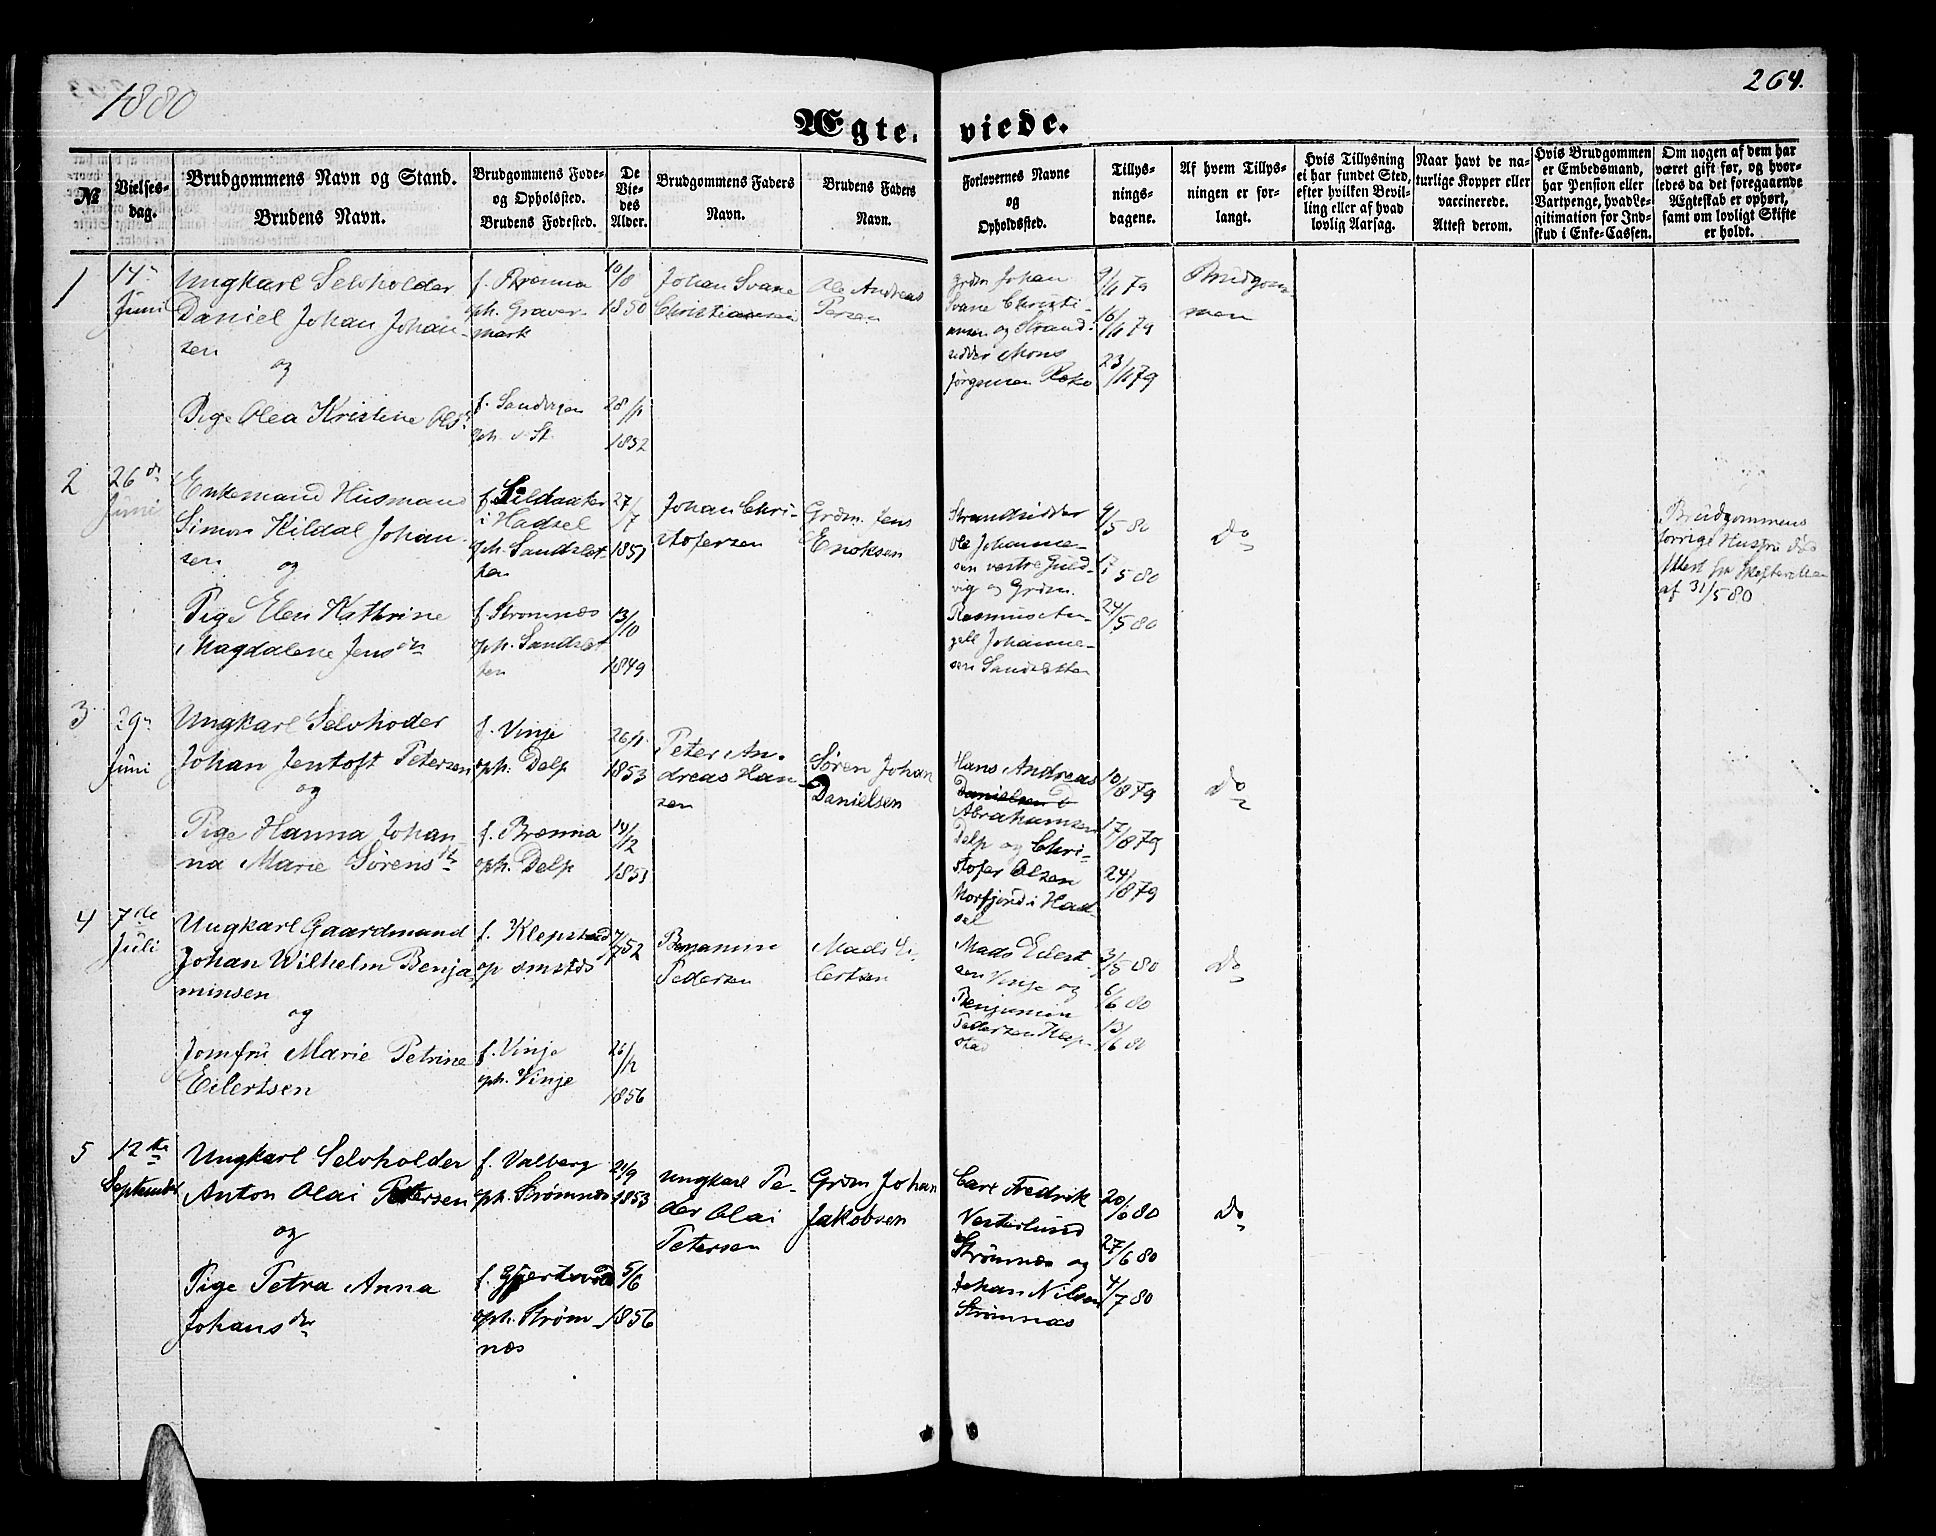 1880
264.
Ægte. viede.
№
Vielses-
dag.
Brudgommens Navn og Stand.
Brudens Navn.
Brudgommens Føde-
og Opholdsted.
Brudens Fødested.
De
Vie-
des
Alder.
Brudgommens Faders
Navn.
Brudens Faders
Navn.
Forlovernes Navne
og
Opholdssted.
Tillys-
nings-
dagene.
Af hvem Tillys-
ningen er for-
langt.
Hvis Tillysning
ei har fundet Sted,
efter hvilken Bevil-
ling eller af hvad
lovlig Aarsag.
Naar havt de na-
turlige Kopper eller
vaccinerede.
Attest derom.
Hvis Brudgommen
er Embedsmand,
har Pension eller
Vartpenge, hvad Le-
gitimation for Ind-
skud i Enke-Cassen.
Om nogen af dem har
været gift før, og hvor-
ledes da det foregaaende
Ægteskab er ophørt,
samt om lovligt Skifte
er holdt.
1
14n
Juni
Ungkarl Selvholder
Daniel Johan Johan-
sen
og
Pige Olea Kristine Olsdtr
f. Brenna
oph. Graver-
mark
f. Sandvigen
oph. d. St.
10/8
1850
28/1
1852
Johan Svane
Christiansen
Ole Andreas
Persen
Grdm Johan
Svane Christi-
ansen og Strand-
sidder Mons
Jørgensen Reko
9/11 79
16/11 79
23/11 79
Brudgom-
men
2
26de
Juni
Enkemand Husmand
Simon Kildal Johan-
sen og
Pige Elen Kathrine
Magdalene Jensdtr
f. Sildaaker
i Hadsel
oph. Sandslet-
ten
f. Strømnæs
oph. Sandslet
ten
27/7
1851
13/10
1849
Johan Chri-
stofersen
Grdm. Jens
Enoksen
Strandsidder
Ole Johanne-
sen vestre Guld-
vig og Grdm.
Rasmus An-
gell Johanne-
sen Sandsletten
9/5 80
17/5 80
24/5 80
do
Brudgommens
forrige Hustru død
Attest fra Skifteretten
af 31/5 80
3
29n
Juni
Ungkarl Selvhoder
Johan Jentoft Petersen
og
Pige Hanna Johan-
na Marie Sørensdtr
f. Vinje
oph. Delp
f. Brenna
oph. Delp
26/1
1853
14/12
1853
Peter An-
dreas Han-
sen
Søren Johan
Danielsen
Hans Andreas
Danielsen
Abrahamsen
Delp og Chri-
stofer Olsen
Morfjord i Had-
sel
10/8 79
17/8 79
24/8 79
do
4
7de
Juli
Ungkarl Gaardmand
Johan Wilhelm Benja-
minsen
og
Jomfru Marie Petrine
Eilertsen
f. Klepstad
op smsteds
f. Vinje
oph. Vinje
7/7 52
26/12
1856
Benjamin
Pedersen
Mads Ei-
lertsen
Mads Eilert-
sen Vinje og
Benjamin
Pedersen Klep-
stad
3/5 80
6/6 80
13/6 80
do
5
12te
September
Ungkarl Selvholder
Anton Olai Petersen
og
Pige Petra Anna
Johansdtr
f. Valberg
oph. Strømnæs
f. Gjertsvold
oph. Strøm-
næs
21/9
1853
5/6
1856
Ungkarl Pe-
der Olai
Petersen
Grdm Johan
Jakobsen
Carl Fredrik
Vesterlund
Strømnæs og
Johan Nilsen
Strømnæs
20/6 80
27/6 80
4/7 80
do